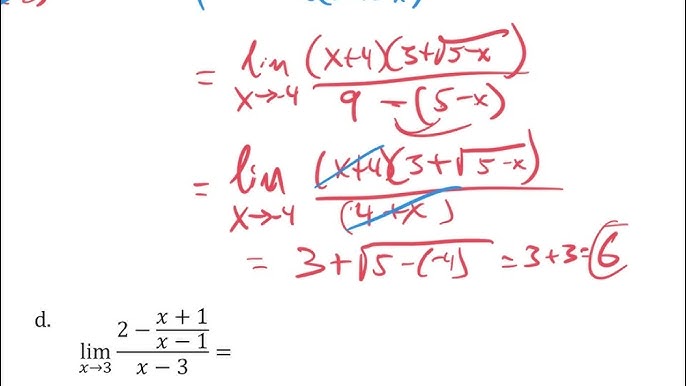 = lim x→-4 (x+4)(3+√5-x) / 9 - (5-x)
= lim x→-4 (x+4)(3+√5-x) / (4+x)
= 3+√5-(-4) = 3+3=6
d. lim x→3 (2 - (x + 1)/(x - 1)) / (x - 3) =